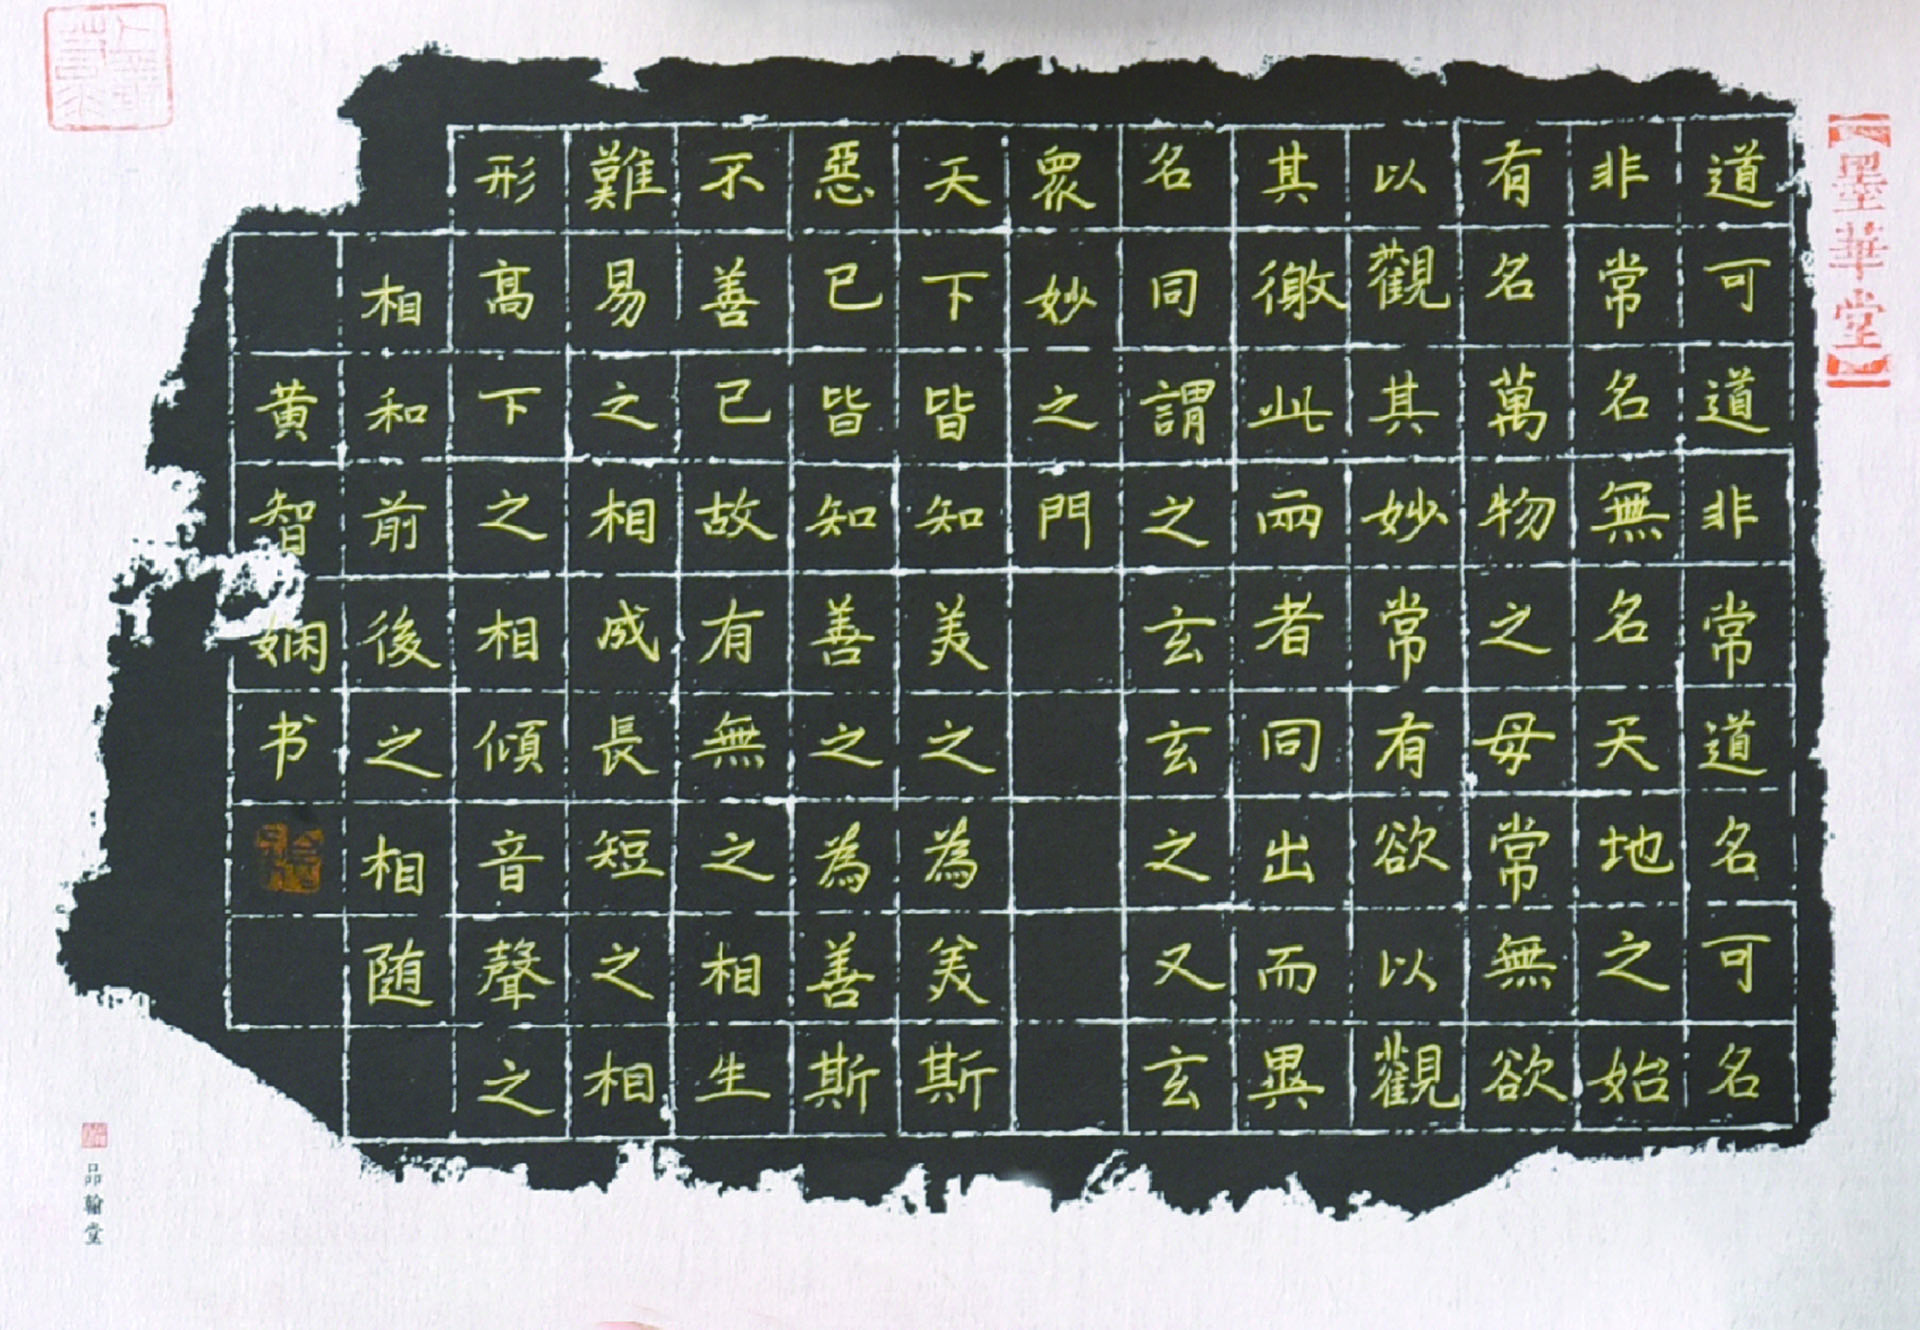 墨華堂
道可道非常道名可名
非常名無名天地之始
有名萬物之母常無欲
以觀其妙常有欲以觀
其徼此兩者同出而異
名同謂之玄玄之又玄
衆妙之門
天下皆知美之為美斯
惡已皆知善之為善斯
不善已故有無之相生
難易之相成長短之相
形高下之相傾音聲之
相和前後之相随
黄智娴书
品翰堂